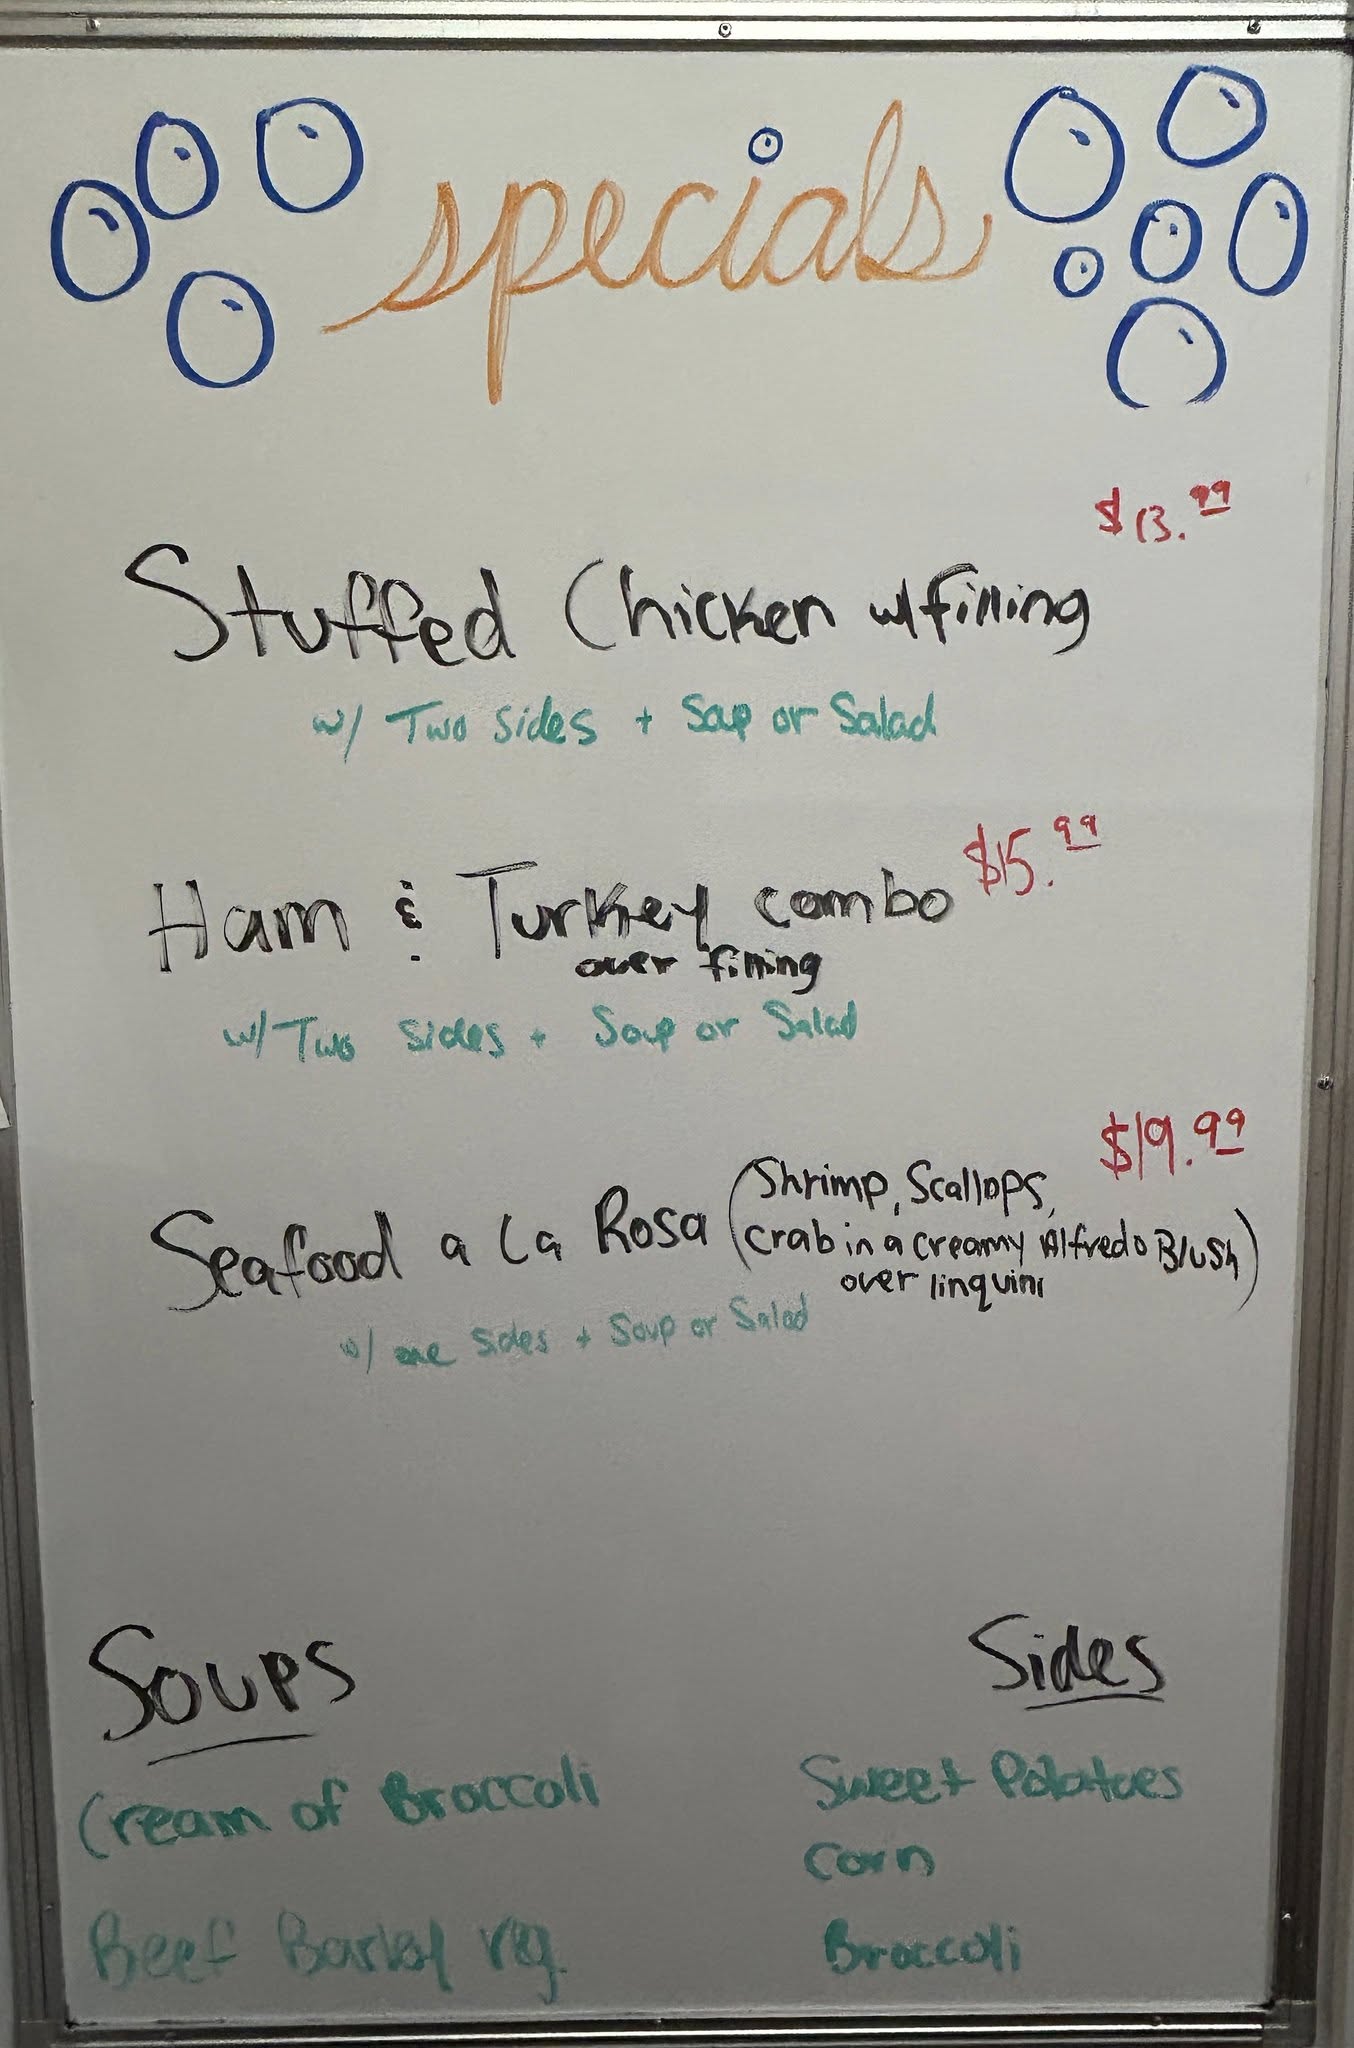 specials
$13.99
Stuffed Chicken w/filling
w/ Two sides + Soup or Salad
$15.99
Ham & Turkey combo
over filling
w/ Two sides + Soup or Salad
$19.99
Seafood a La Rosa (Shrimp, Scallops,
crab in a creamy Alfredo Blush)
over linquini
w/ one sides + Soup or Salad
Soups
Cream of Broccoli
Beef Barley veg
Sides
Sweet Potatoes
corn
Broccoli